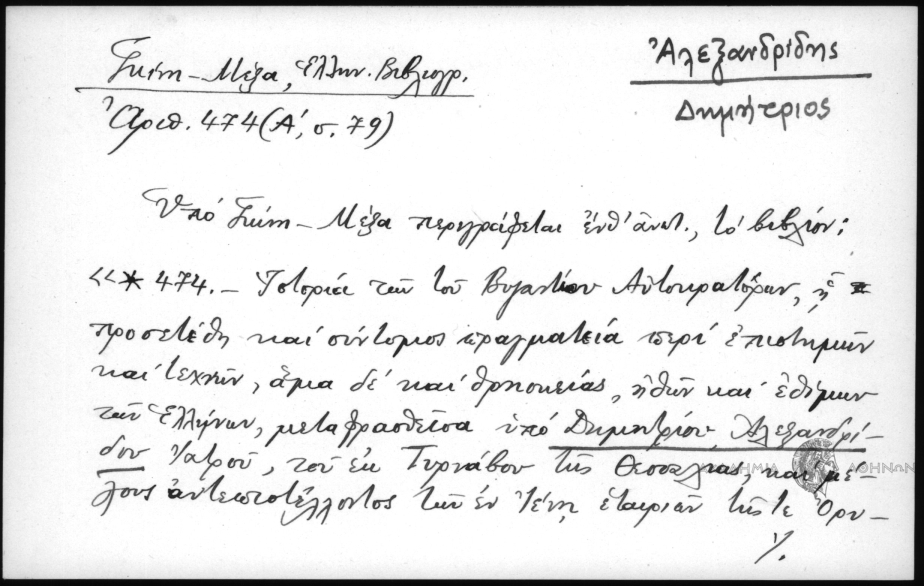 Γκίνη-Μέξα, Ἑλλην. Βιβλιογρ.
Ἀριθ. 474 (Α΄, σ. 79)
Ἀλεξανδρίδης
Δημήτριος
Ὑπό Γκίνη-Μέξα περιγράφεται ἐνθ' ἀνωτ., τό βιβλίον:
«* 474. - Ἱστορία τῶν τοῦ Βυζαντίου Αὐτοκρατόρων, ᾗ
προσετέθη καί σύντομος πραγματεία περί ἐπιστημῶν
καί τεχνῶν, ἅμα δέ καί θρησκείας, ἠθῶν καί ἐθίμων
τῶν Ἑλλήνων, μεταφρασθεῖσα ὑπό Δημητρίου Ἀλεξανδρί-
δου Ἰατροῦ, τοῦ ἐκ Τυρνάβου τῆς Θεσσαλίας, καί μέ-
λους ἀντεπιστέλλοντος τῶν ἐν Ἰένῃ ἑταιριῶν τῆς τε Ὀρυ-
./.
ΑΚΑΔΗΜΙΑ ΑΘΗΝΩΝ